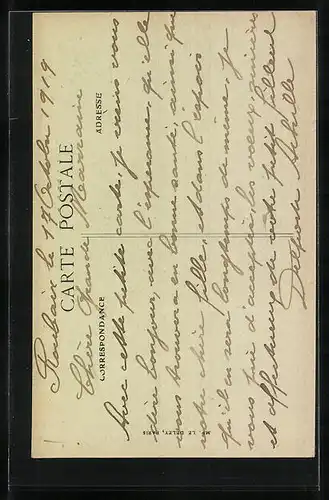 Roubaix le 17 Octobre 1919
CARTE POSTALE
Chère Grande Marraine
CORRESPONDANCE
ADRESSE
Avec cette petite carte, je viens vous
dire bonjour, avec l'espérance, qu'elle
vous trouvera en bonne santé, ainsi que
votre chère fille, et dans l'espoir
qu'il en sera longtemps de même, je
vous prie d'accepter les vœux sincères
et affectueux de votre petit filleul
Achille
IMP. LE DELEY, PARIS